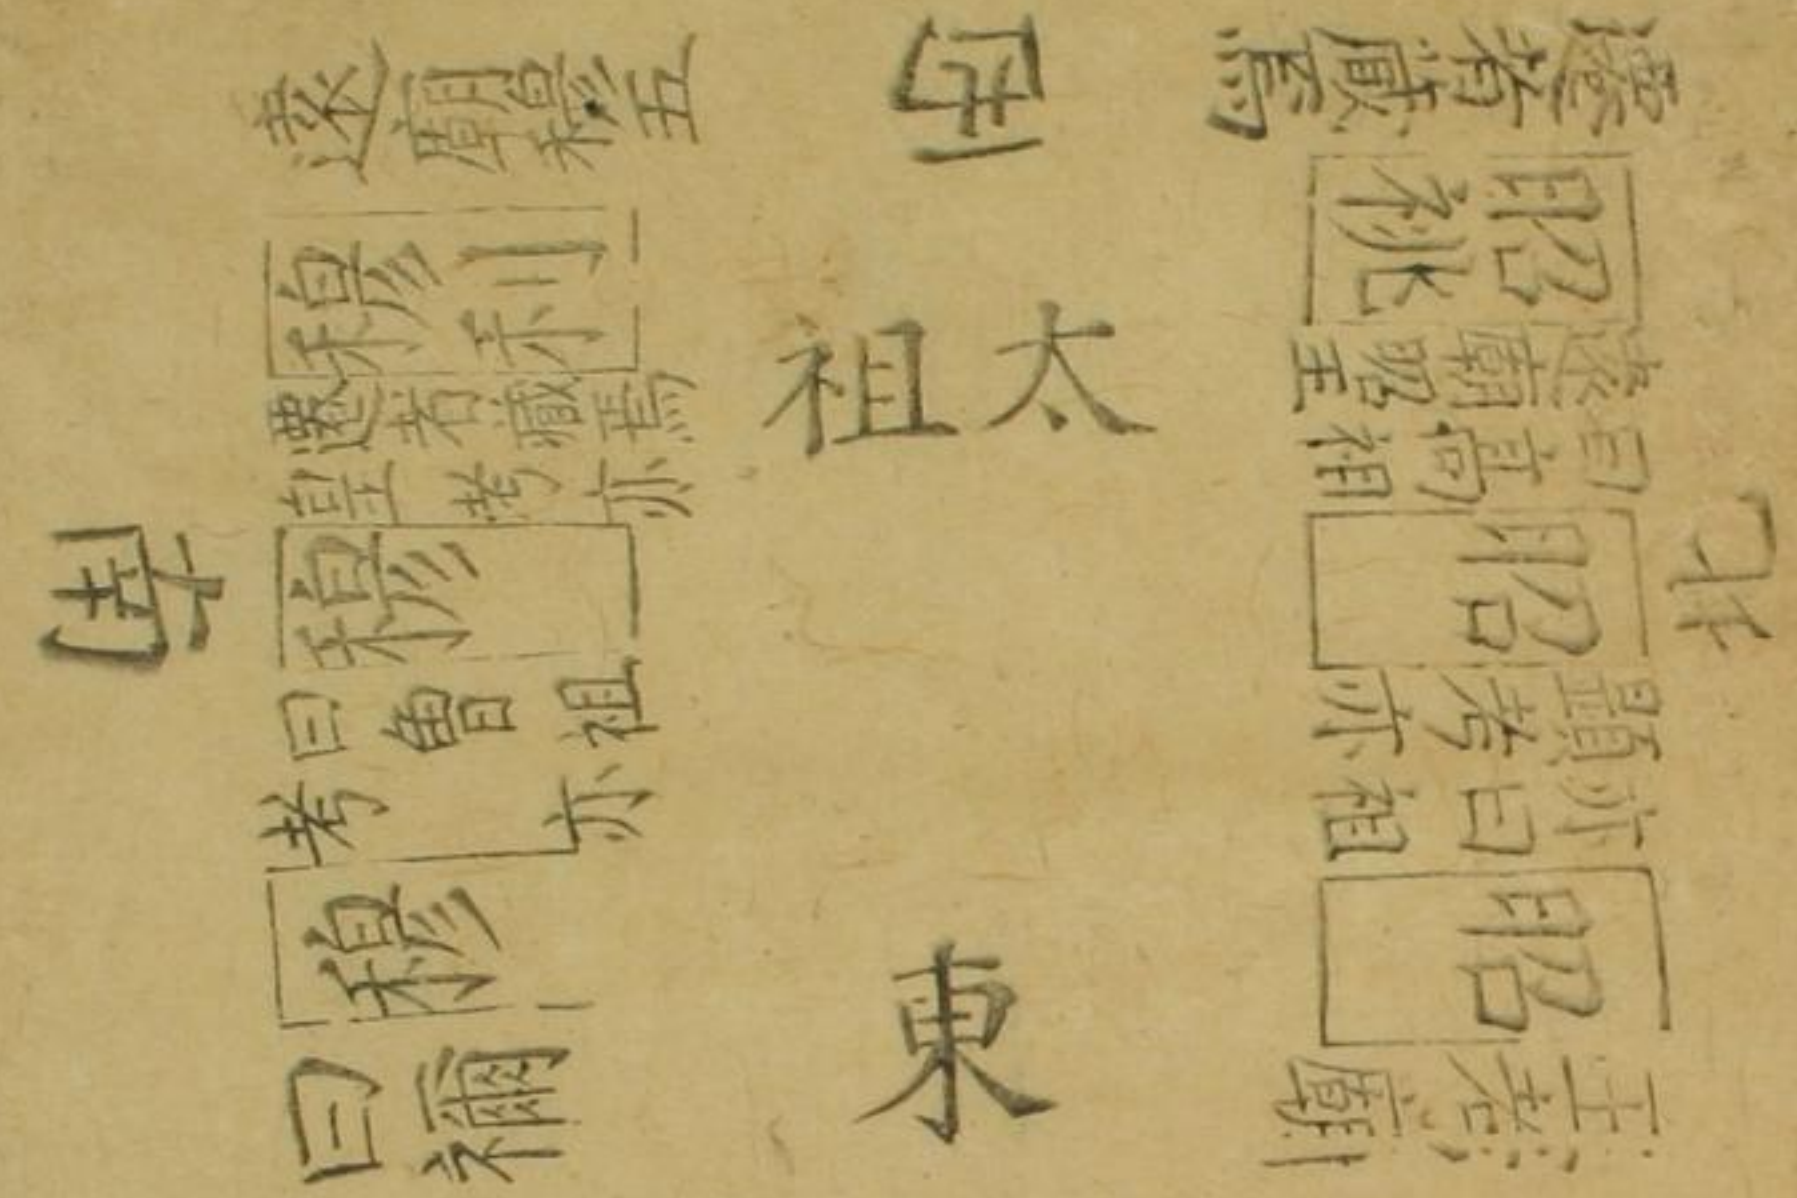 西
北
遷者藏焉
昭祧
遠廟昭王
曰高祖
昭
顯考亦
亦曰祖
昭
王考廟
太祖
東
遠廟穆五
穆祧
遷者藏焉
皇考亦
穆
曰曾祖
考亦
穆
曰禰
南